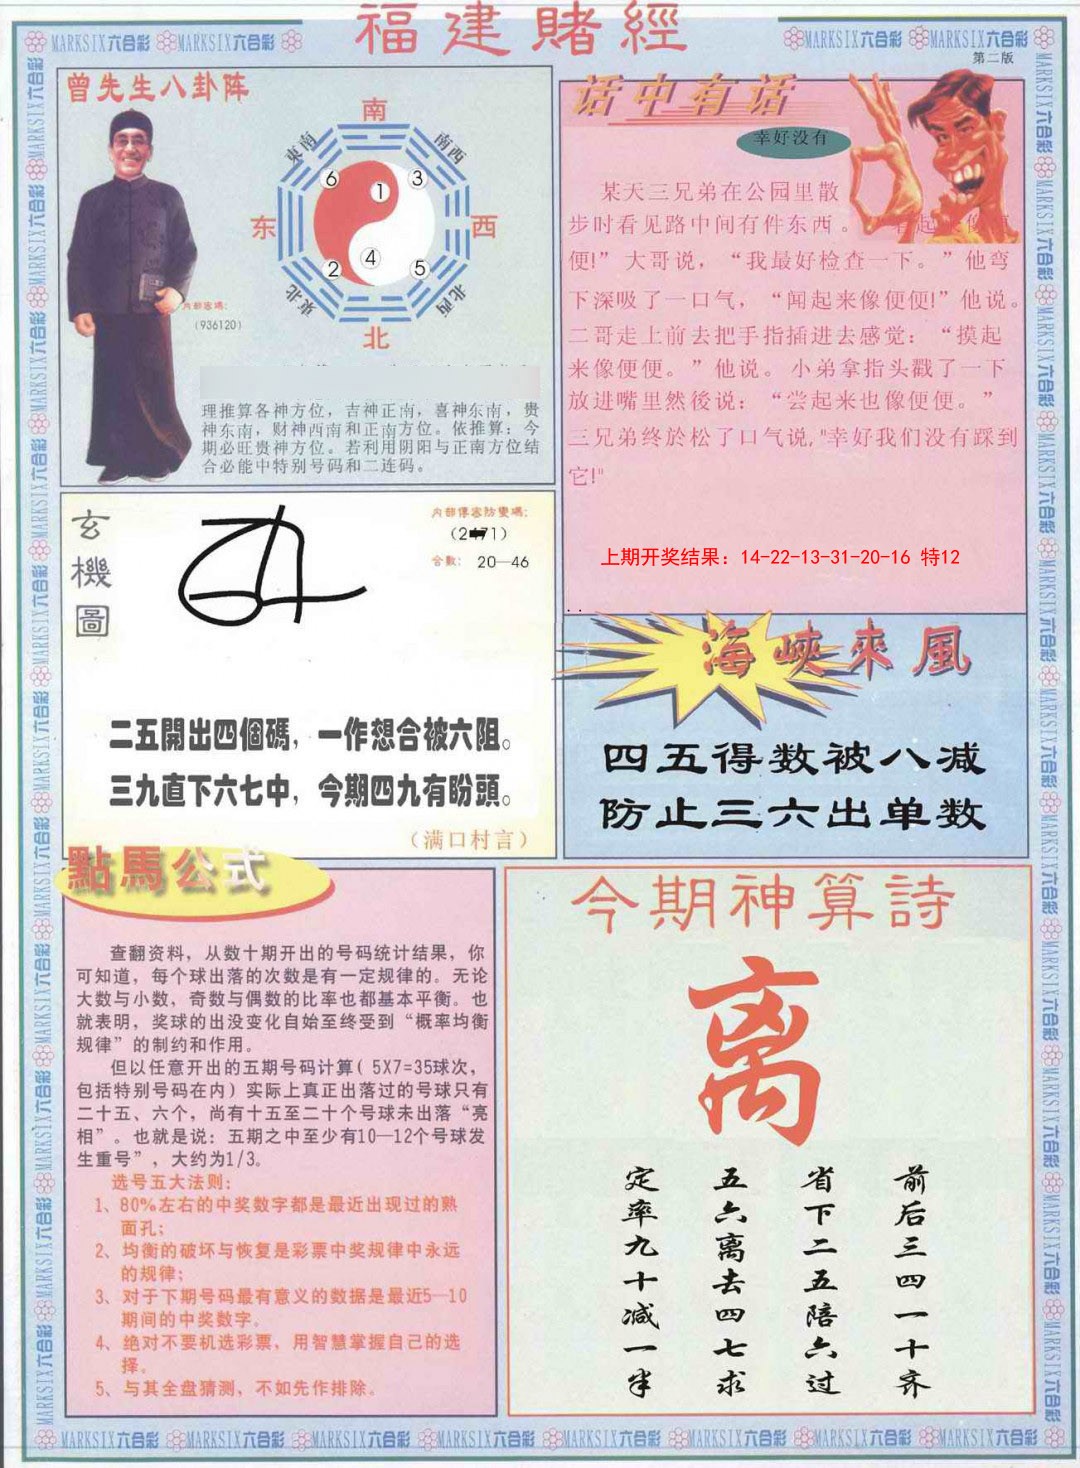 福建賭經
MARKSIX六合彩 MARKSIX六合彩 MARKSIX六合彩 MARKSIX六合彩
第二版
曾先生八卦阵
南
東南 南西
6 1 3
东 西
2 4 5
東北 北西
北
内部密碼:
(936120)
理推算各神方位，吉神正南，喜神东南，贵
神东南，财神西南和正南方位。依推算：今
期必旺贵神方位。若利用阴阳与正南方位结
合必能中特别号码和二连码。
话中有话
幸好没有
某天三兄弟在公园里散
步时看见路中间有件东西。
便!”大哥说，“我最好检查一下。”他弯
下深吸了一口气，“闻起来像便便!”他说。
二哥走上前去把手指插进去感觉：“摸起
来像便便。”他说。小弟拿指头戳了一下
放进嘴里然後说：“尝起来也像便便。”
三兄弟终於松了口气说,"幸好我们没有踩到
它!"
上期开奖结果：14-22-13-31-20-16 特12
玄機圖
内部傳密防雙碼:
合數: 20—46
二五開出四個碼，一作想合被六阻。
三九直下六七中，今期四九有盼頭。
（满口村言）
海峽來風
四五得数被八减
防止三六出单数
點馬公式
查翻资料，从数十期开出的号码统计结果，你
可知道，每个球出落的次数是有一定规律的。无论
大数与小数，奇数与偶数的比率也都基本平衡。也
就表明，奖球的出没变化自始至终受到“概率均衡
规律”的制约和作用。
但以任意开出的五期号码计算( 5X7=35球次，
包括特别号码在内）实际上真正出落过的号球只有
二十五、六个，尚有十五至二十个号球未出落“亮
相”。也就是说：五期之中至少有10—12个号球发
生重号”，大约为1/3。
选号五大法则:
1、80%左右的中奖数字都是最近出现过的熟
面孔;
2、均衡的破坏与恢复是彩票中奖规律中永远
的规律;
3、对于下期号码最有意义的数据是最近5—10
期间的中奖数字。
4、绝对不要机选彩票，用智慧掌握自己的选
择。
5、与其全盘猜测，不如先作排除。
今期神算詩
离
前后三四一十齐
省下二五陪六过
五六离去四七求
定率九十减一半
MARKSIX六合彩 MARKSIX六合彩 MARKSIX六合彩 MARKSIX六合彩 MARKSIX六合彩 MARKSIX六合彩 MARKSIX六合彩 MARKSIX六合彩